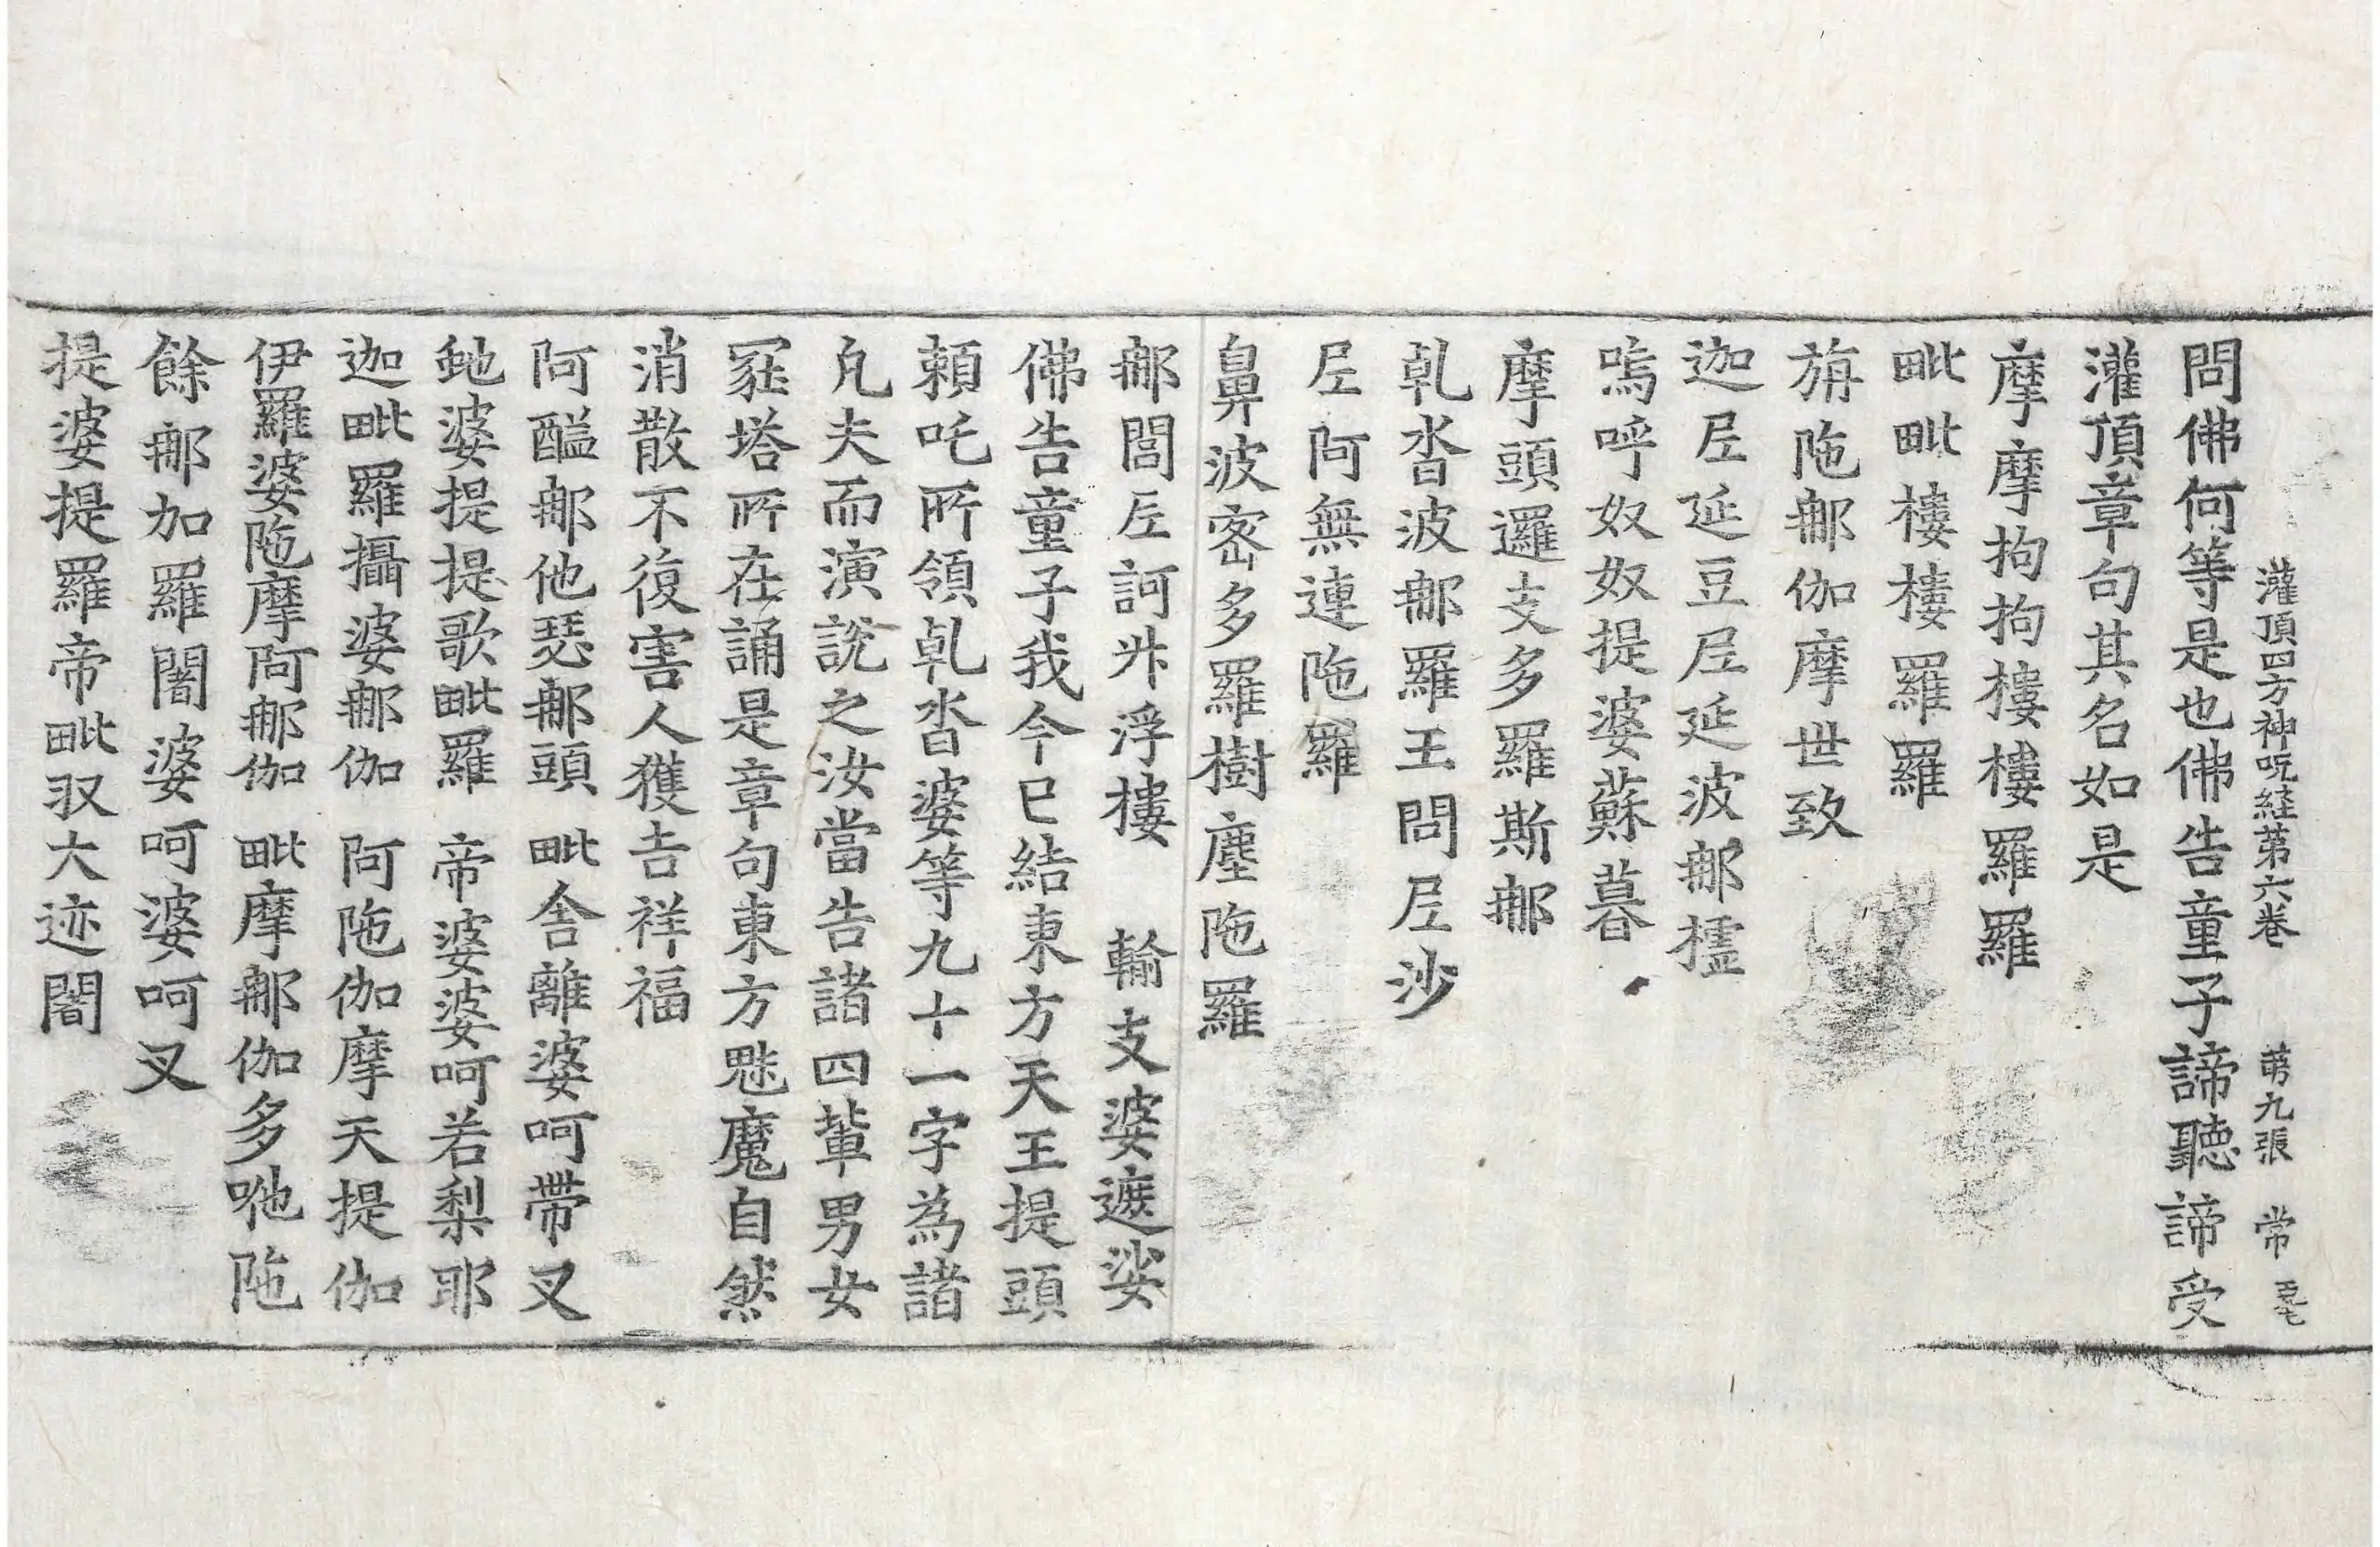 灌頂四方神呪経第六巻 苐九張 常
問佛何等是也佛告童子諦聽諦受
灌頂章句其名如是
摩摩拘拘樓樓羅羅
毗毗樓樓羅羅
旃陁郍伽摩世致
迦𡰱延豆𡰱延波郍櫺
嗚呼奴奴提婆蘇暮
摩頭邏支多羅斯郍
乹沓波郍羅王問𡰱沙
𡰱阿無連陁羅
鼻波宻多羅樹塵陁羅
郍閭𡰱訶丼浮樓 輸支婆遮娑
佛告童子我今已結東方天王提頭
頼吒所領乹沓婆等九十一字為諸
凡夫而演說之汝當告諸四輩男女
冢塔所在誦是章句東方魅魔自然
消散不復害人獲吉祥福
阿醯郍他瑟郍頭 毗舍離婆呵帶叉
虵婆提提歌毗羅 帝婆婆呵若梨耶
迦毗羅攝婆郍伽 阿陁伽摩天提伽
伊羅婆陁摩阿郍伽 毗摩郍伽多咃陁
餘郍加羅闍婆呵婆呵叉
提婆提羅帝毗収大迹闍